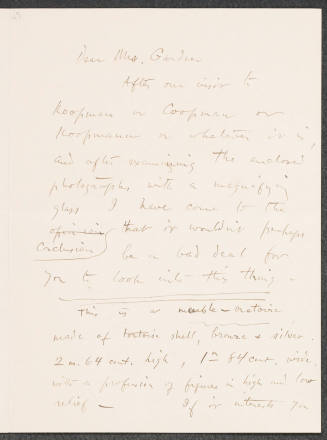 Dear Mrs. Gardner
After our visit to
Koopman or Coopman or
Koopmann or whatever it is,
and after examining the enclosed
photographs with a magnifying
glass I have come to the
opinion that it wouldn't perhaps
conclusion be a bad deal for
you to look into this thing -
This is a marble - oratoire
made of tortoise shell, bronze + silver.
2 m. 64 cent. high, 1m 84 cent. wide,
with a profusion of figures in high and low
relief - If it interests you